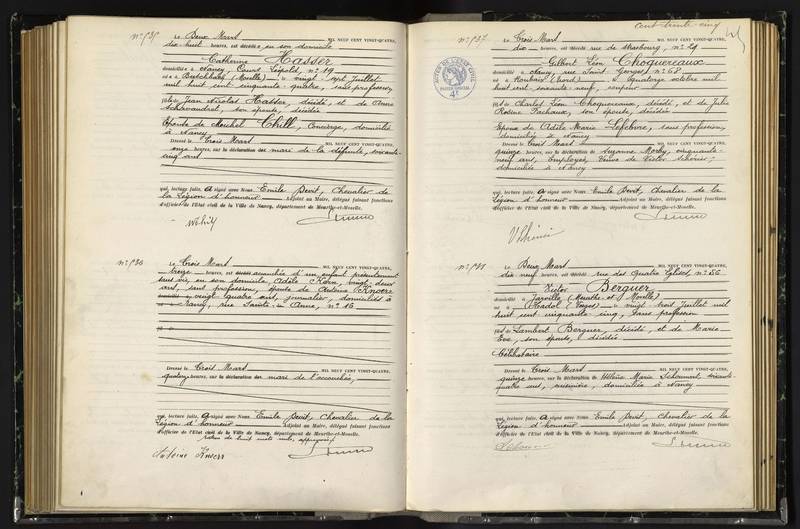 n° 935
Le Deux Mars MIL NEUF CENT VINGT-QUATRE,
dix huit heures, est décédée, en son domicile
Catherine Hasser
domiciliée à Nancy, Cours Léopold, n° 19
née à (Moselle) le vingt sept Juillet
mil huit cent cinquante quatre, sans profession,
fille de Jean Nicolas Hasser, décédé et de Anne
son épouse, décédée
Epouse de Michel Thill, Concierge, domicilié
à Nancy
Dressé le Trois Mars MIL NEUF CENT VINGT-QUATRE,
onze heures, sur la déclaration du mari de la défunte, soixante-
cinq ans
qui, lecture faite, a signé avec Nous Emile Devit, Chevalier de
la Légion d'honneur Adjoint au Maire, délégué faisant fonctions
d'officier de l'Etat civil de la Ville de Nancy, département de Meurthe-et-Moselle.
n° 936
Le Trois Mars MIL NEUF CENT VINGT-QUATRE,
treize heures, est accouchée d'un enfant présentement
sans vie, en son domicile Adèle Korn, vingt-deux
ans, sans profession, épouse de Antoine Knoerr
vingt quatre ans, journalier, domiciliés à
Nancy, rue Sainte Anne, n° 16
Dressé le Trois Mars MIL NEUF CENT VINGT-QUATRE,
quatorze heures, sur la déclaration du mari de l'accouchée,
qui, lecture faite, a signé avec Nous Emile Devit, Chevalier de la
Légion d'honneur Adjoint au Maire, délégué faisant fonctions
d'officier de l'Etat civil de la Ville de Nancy, département de Meurthe-et-Moselle.
Antoine Knoerr
cent trente cinq
n° 937
Le Trois Mars MIL NEUF CENT VINGT-QUATRE,
dix heures, est décédé rue de Strasbourg, n° 29
Gilbert Léon Choquereaux
domicilié à Nancy, rue Saint Georges, n° 68
né à Roubaix (Nord) le quatorze octobre mil
huit cent soixante-neuf,
fils de Charles Léon Choquereaux, décédé, et de Julie
Rosine Pachaux, son épouse, décédée
Epoux de Adèle Marie Lefebvre, sans profession,
domiciliée à Nancy
Dressé le Trois Mars MIL NEUF CENT VINGT-QUATRE,
quinze heures, sur la déclaration de Suzanne cinquante-
neuf ans, Employée, Veuve de Victor
domiciliée à Nancy
qui, lecture faite, a signé avec Nous Emile Devit, Chevalier de la
Légion d'honneur Adjoint au Maire, délégué faisant fonctions
d'officier de l'Etat civil de la Ville de Nancy, département de Meurthe-et-Moselle.
Le Deux Mars MIL NEUF CENT VINGT-QUATRE,
dix neuf heures, est décédé rue des Quatre Eglises, n° 56
Victor Berguer
domicilié à Jarville (Meurthe et Moselle)
né à (Vosges) le vingt trois Juillet mil
huit cent cinquante cinq, sans profession
fils de Lambert Berguer, décédé, et de Marie
Eve, son épouse, décédée
Célibataire
Dressé le Trois Mars MIL NEUF CENT VINGT-QUATRE,
quinze heures, sur la déclaration de Hélène Marie soixante-
quatre ans, domiciliée à Nancy
qui, lecture faite, a signé avec Nous Emile Devit, Chevalier de la
Légion d'honneur Adjoint au Maire, délégué faisant fonctions
d'officier de l'Etat civil de la Ville de Nancy, département de Meurthe-et-Moselle.